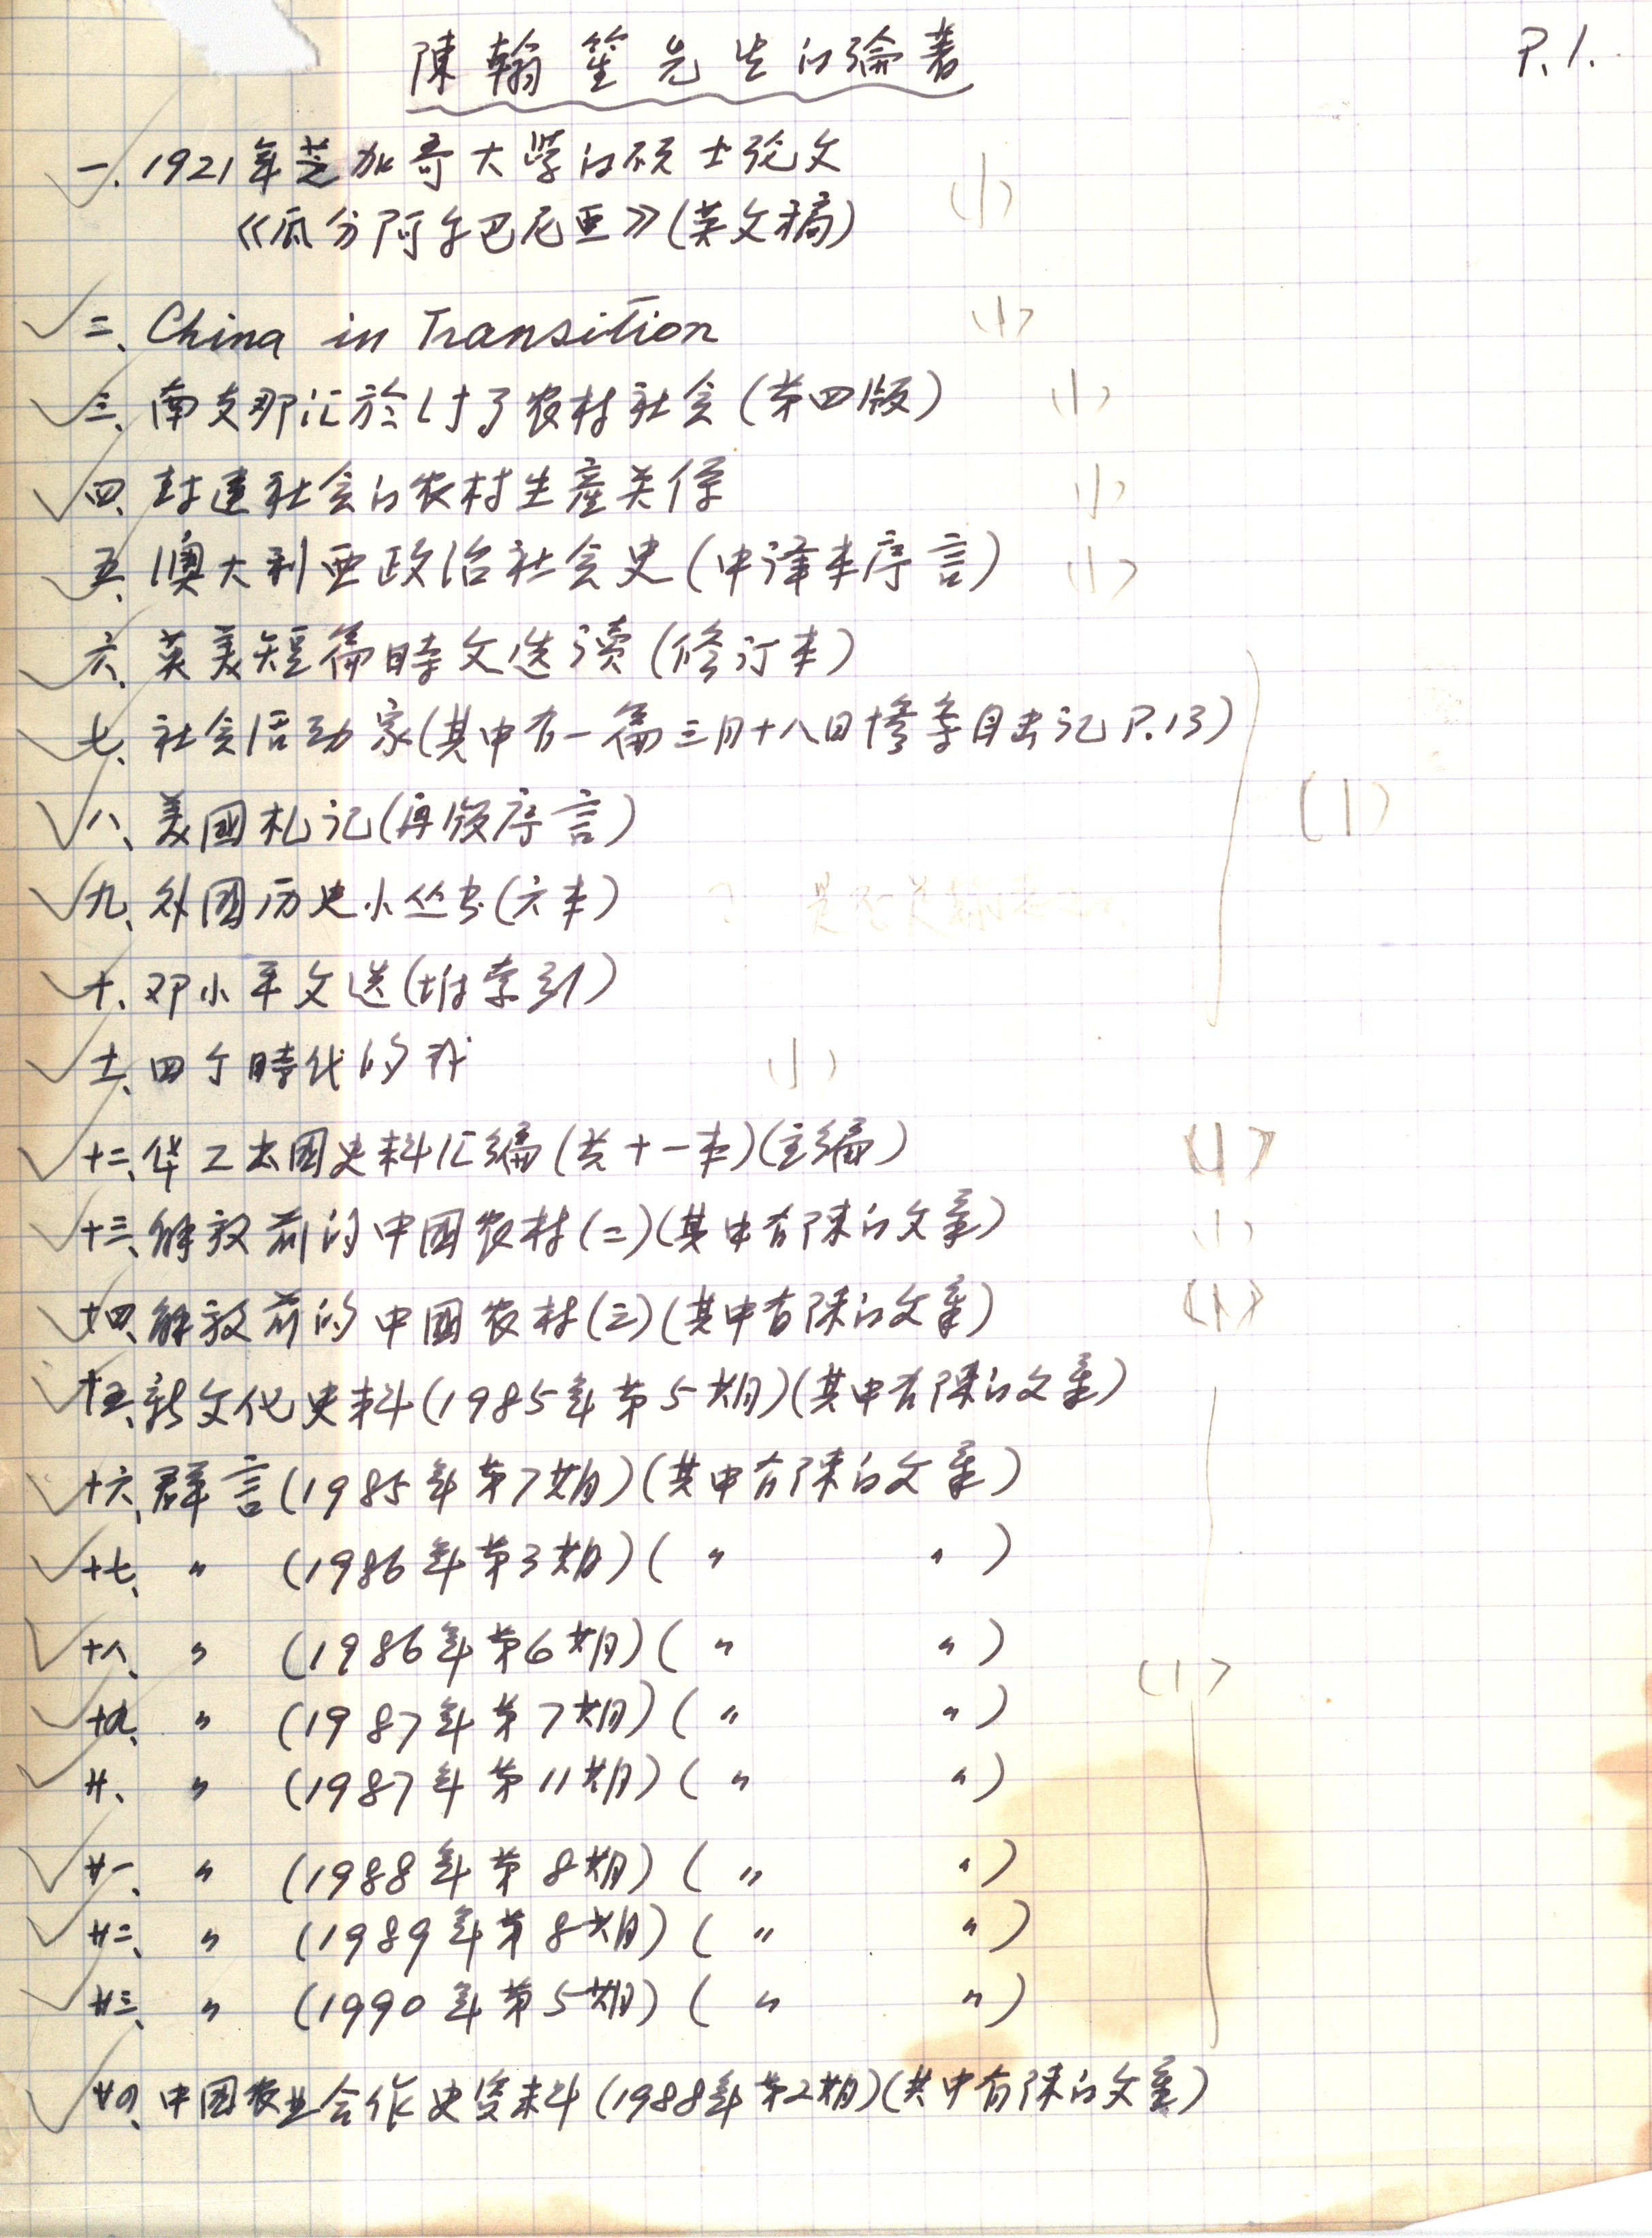 陳翰笙先生的論著
P.1.
一、1921年芝加哥大学的硕士论文
《瓜分阿尔巴尼亚》(英文稿)
(1)
二、China in Transition
(1)
三、南支那に於ける农村社会(第四版)
(1)
四、封建社会的农村生產关係
(1)
五、澳大利亚政治社会史(中译本序言)
(1)
六、英美短篇時文选讀(修订本)
七、社会活动家(其中有一篇三月十八日惨案目击记P.13)
八、美國札记(再版序言)
(1)
九、外國历史小丛书(六本)
十、邓小平文选(附索引)
十一、四个時代的我
(1)
十二、华工出國史料汇編(共十一本)(主編)
(1)
十三、解放前的中國农村(二)(其中有陳的文章)
(1)
十四、解放前的中國农村(三)(其中有陳的文章)
(1)
十五、新文化史料(1985年第5期)(其中有陳的文章)
十六、群言(1985年第7期)(其中有陳的文章)
十七、〃(1986年第3期)(〃 〃)
十八、〃(1986年第6期)(〃 〃)
(1)
十九、〃(1987年第7期)(〃 〃)
廿、〃(1987年第11期)(〃 〃)
廿一、〃(1988年第8期)(〃 〃)
廿二、〃(1989年第8期)(〃 〃)
廿三、〃(1990年第5期)(〃 〃)
廿四、中國农业合作史资料(1988年第2期)(其中有陳的文章)